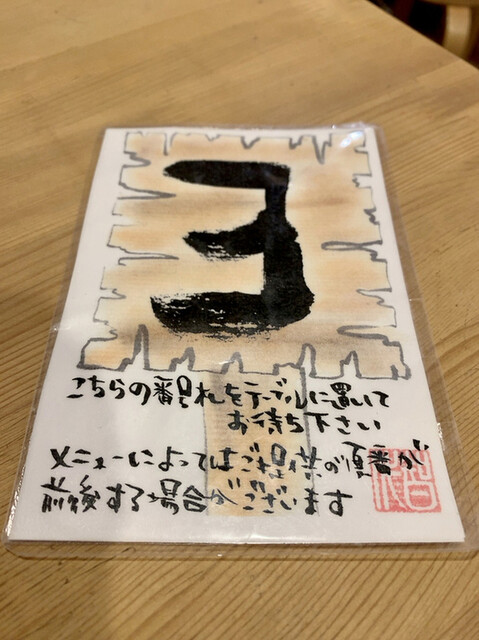 3
こちらの番号札をテーブルに置いて
お待ち下さい
メニューによってはご提供の順番が
前後する場合がございます